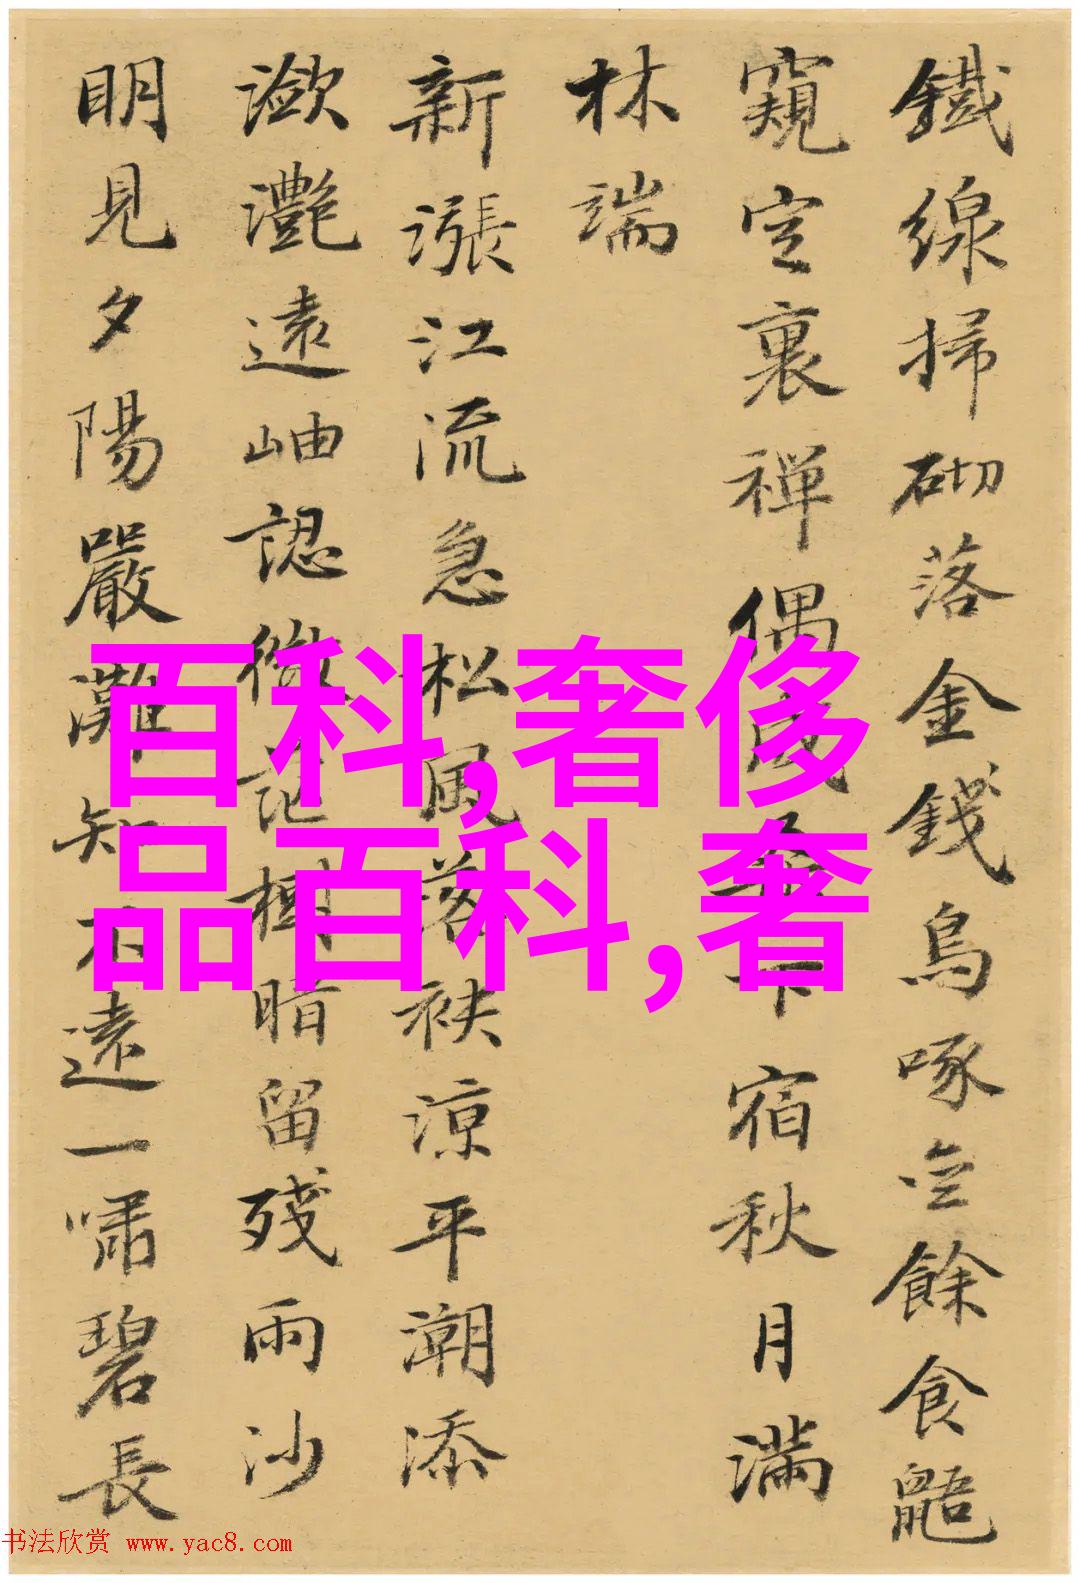 鐵線掃砌落金錢烏啄餘食鼯
窺定裏禪偶成下宿秋月滿
林端
新漲江流急松風落袂涼平潮添
瀲灩遠岫認微茫樹暗留殘雨沙
明見夕陽嚴灘知不遠一嘯碧長
百科,奢侈
品百科,奢
书法欣赏 www.yac8.com